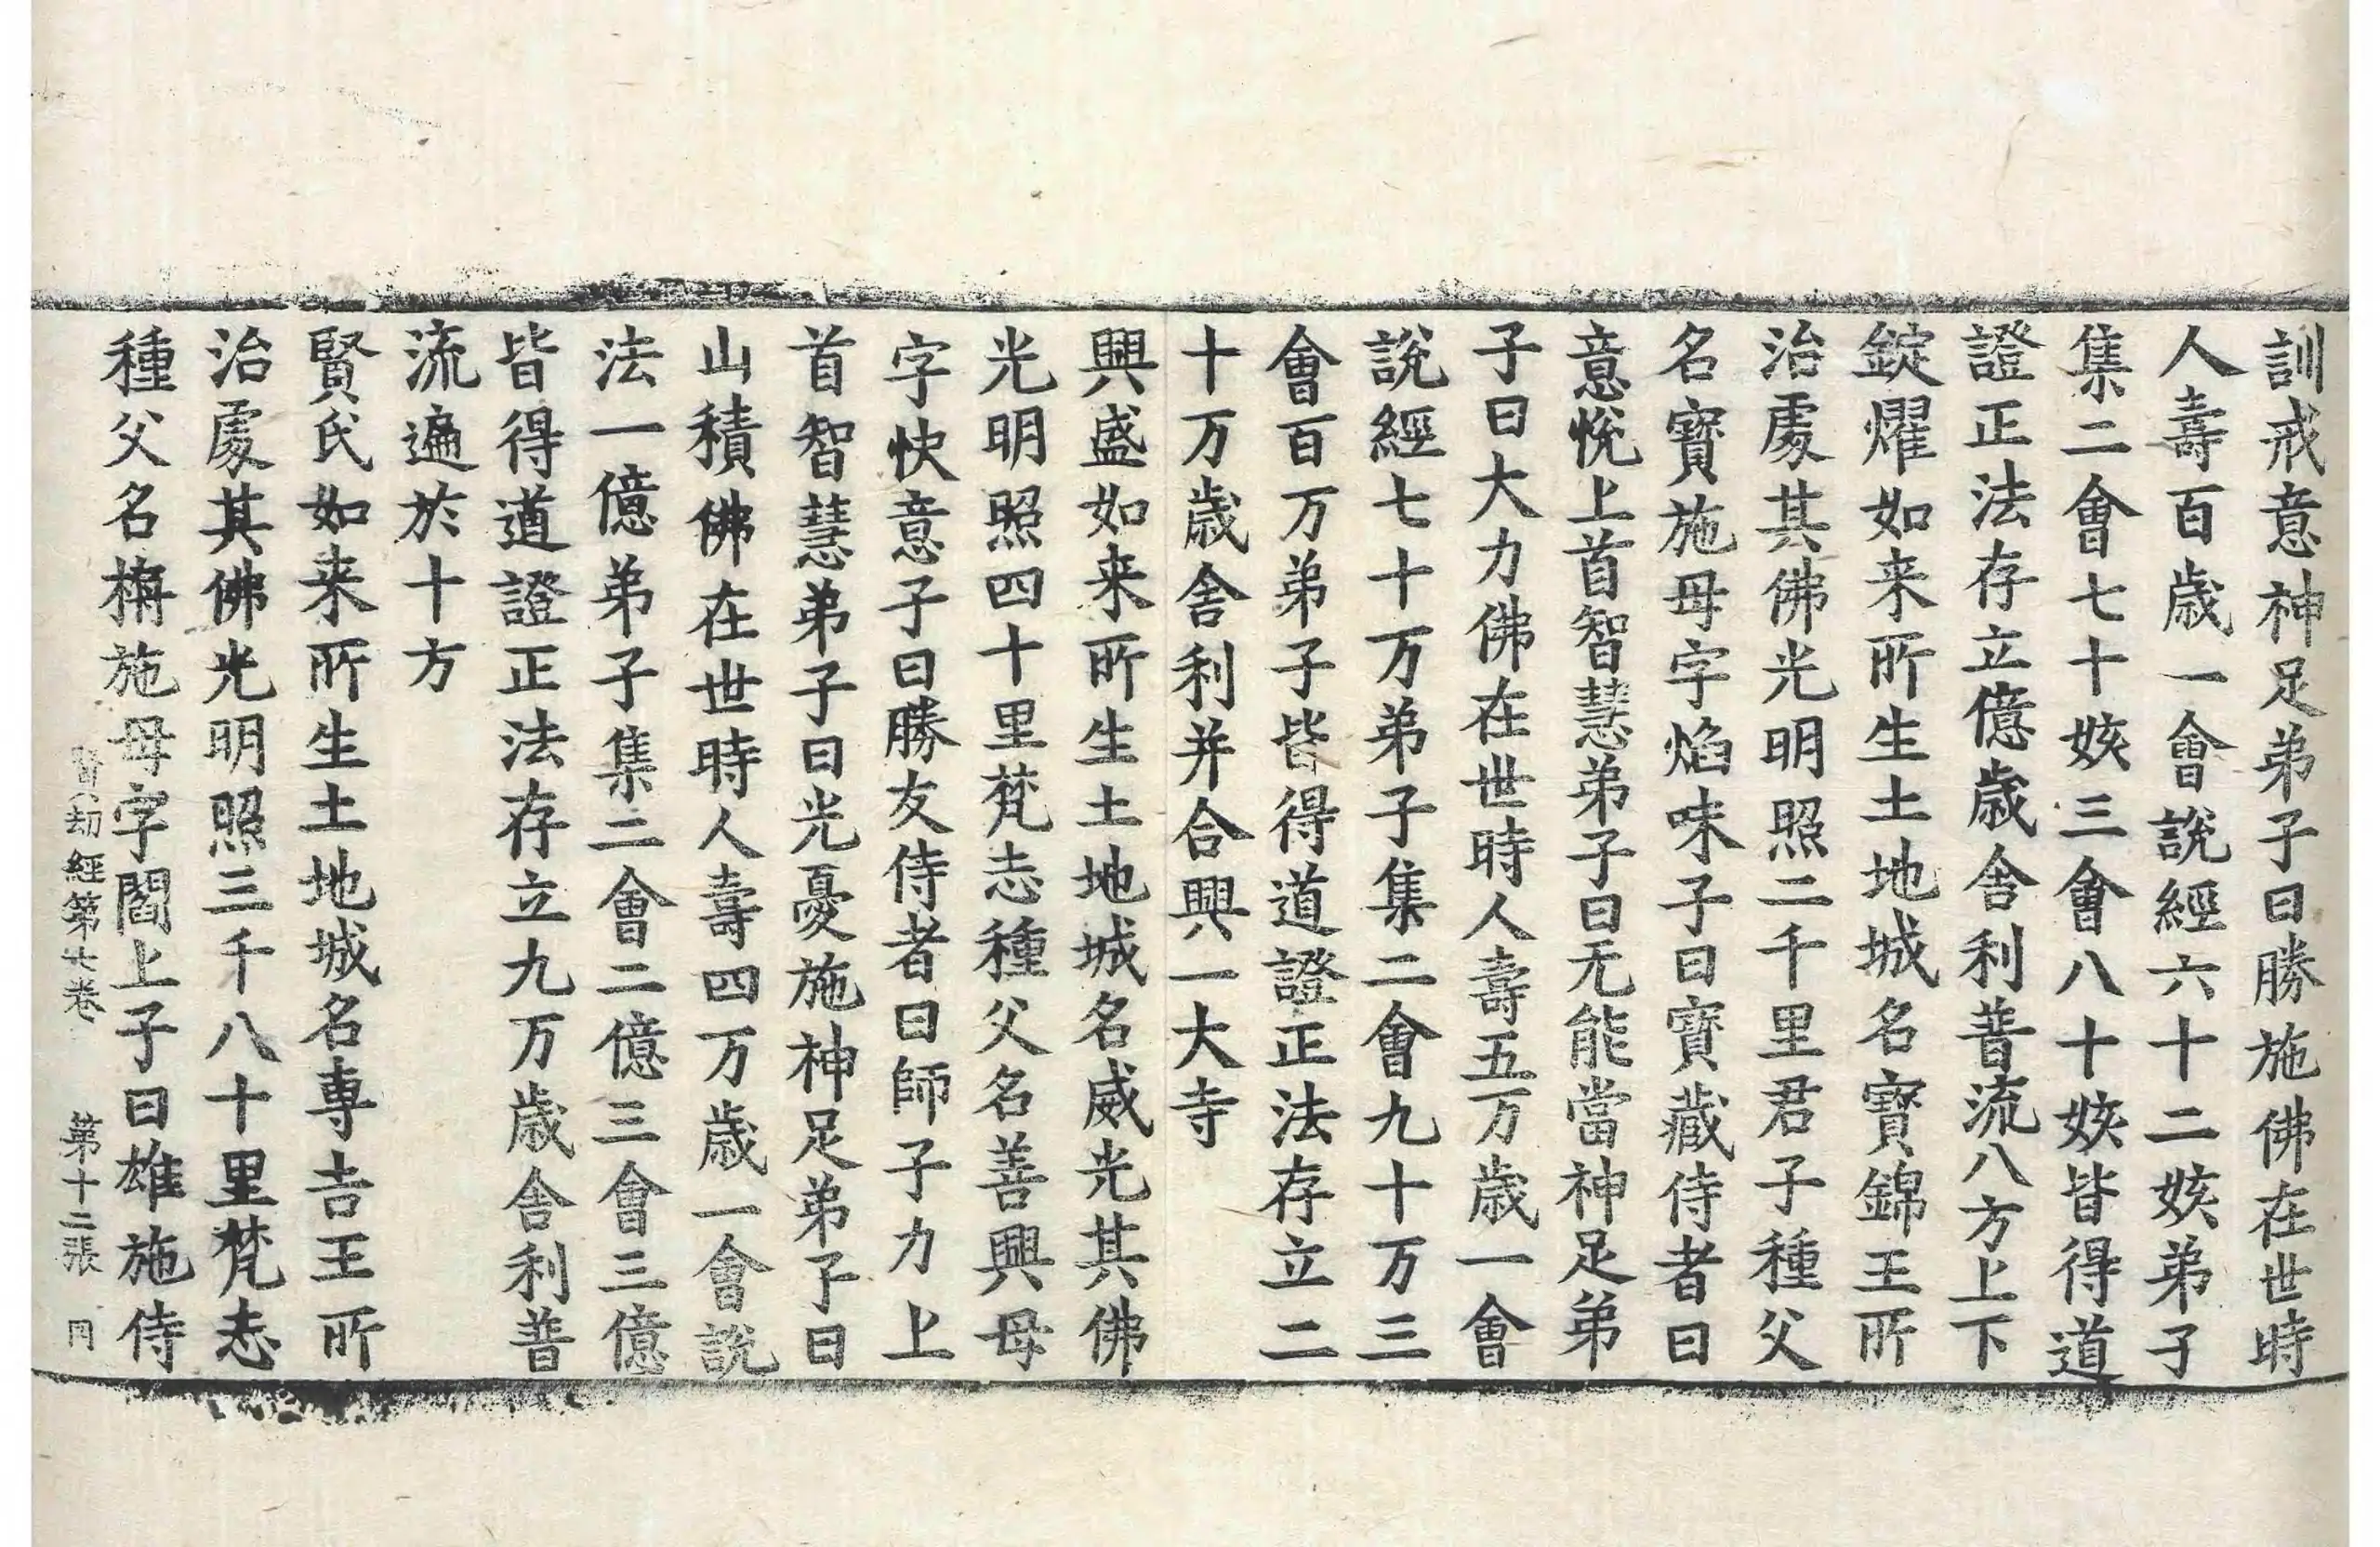 訓戒意神足弟子曰勝施佛在世時
人壽百歲一會說經六十二姟弟子
集二會七十姟三會八十姟皆得道
證正法存立億歲舍利普流八方上下
錠燿如来所生土地城名寳錦王所
治處其佛光明照二千里君子種父
名寳施母字焰味子曰寳藏侍者曰
意悅上首智慧弟子曰无能當神足弟
子曰大力佛在世時人壽五万歲一會
說經七十万弟子集二會九十万三
會百万弟子皆得道證正法存立二
十万歲舍利并合興一大寺
興盛如来所生土地城名威光其佛
光明照四十里梵志種父名善興母
字快意子曰勝友侍者曰師子力上
首智慧弟子曰光憂施神足弟子曰
山積佛在世時人壽四万歲一會說
法一億弟子集二會二億三會三億
皆得道證正法存立九万歲舍利普
流遍於十方
賢氏如来所生土地城名專吉王所
治處其佛光明照三千八十里梵志
種父名栴施母字閻上子曰雄施侍
賢劫經第七卷 第十二張 同